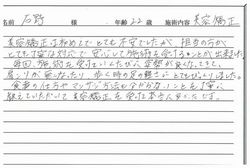 名前 石野 様 年齢 22 歳 施術内容 美容矯正
美容矯正は初めてでとても不安でしたが、担当の方が
とても丁寧な対応で安心して施術を受けることが出来ました。
毎回、施術を受けていくたびに姿勢が良くなってきて、
肩こりが無くなったり、歩く時の足の軽さにとてもびっくりしました。
食事の仕方やマッサージ方法も分からないことも丁寧に
教えていただいて美容矯正を受けて本当に良かったです。